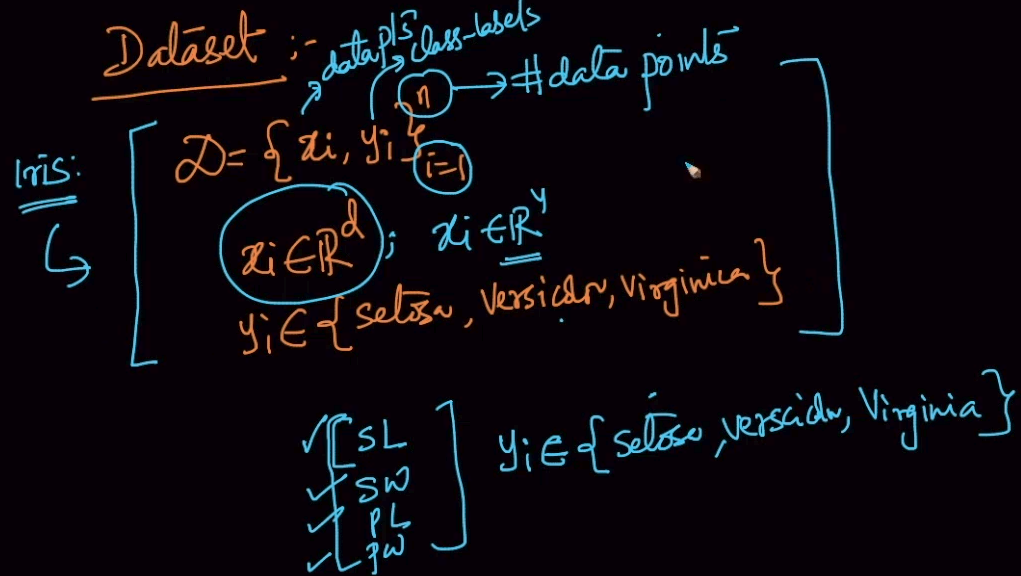 Dataset :-
datapts class-labels
n → #data points
Iris:
D = {xi, yi}
i=1
xi ∈ ℝ^d ; xi ∈ ℝ^4
yi ∈ {setosa, versicolor, virginica}
SL
SW
PL
PW
yi ∈ {setosa, verscidr, Virginia}